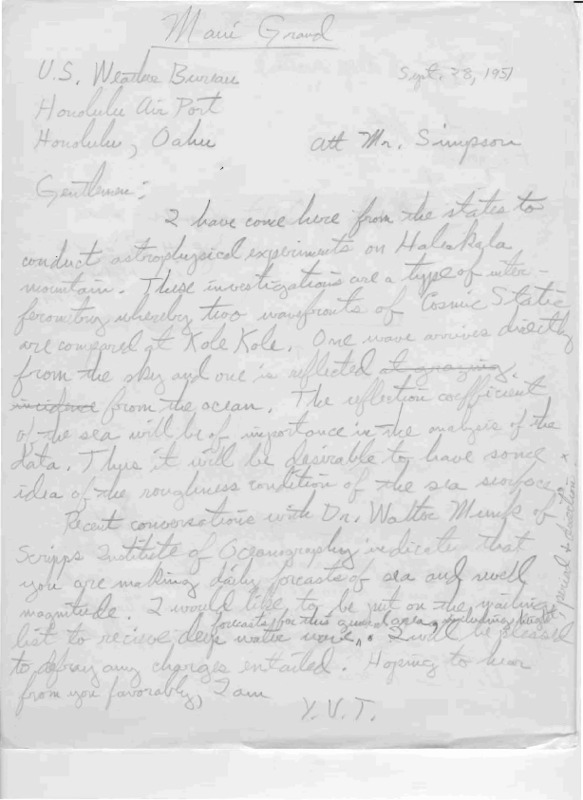 Maui Grand
U.S. Weather Bureau Sept. 28, 1951
Honolulu Air Port
Honolulu, Oahu att Mr. Simpson
Gentlemen:
I have come here from the states to
conduct astrophysical experiments on Haleakala
mountain. These investigations are a type of inter-
ferometry whereby two wavefronts of Cosmic Static
are compared at Kole Kole. One wave arrives directly
from the sky and one is reflected at grazing
incidence from the ocean. The reflection coefficient
of the sea will be of importance in the analysis of the
data. Thus it will be desirable to have some
idea of the roughness condition of the sea surface.
Recent conversations with Dr. Walter Munk of
Scripps Institute of Oceanography indicate that
you are making daily forcasts of sea and swell
magnitude. I would like to be put on the mailing
forcasts for this general area, including height, period & direction
list to recieve deep water wave. I will be pleased
to defray any charges entailed. Hoping to hear
from you favorably, I am
Y.V.T.